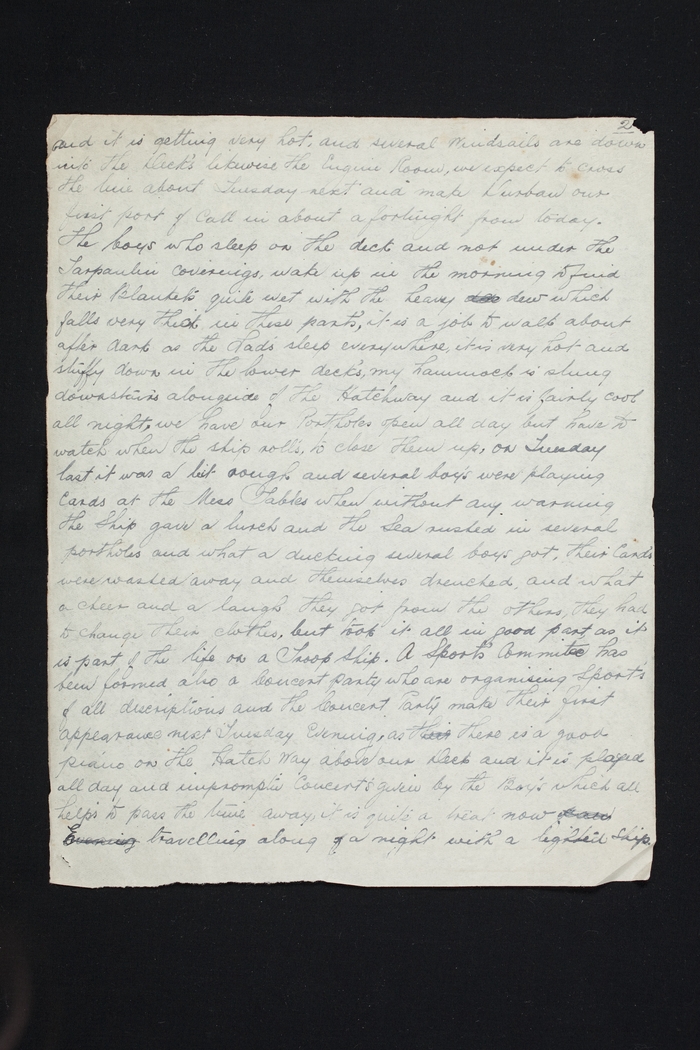 2
and it is getting very hot, and several Windsails are down
into the Deck's likewise the Engine Room, we expect to cross
the line about Tuesday next and make Durban our
first port of call in about a fortnight from today.
The boys who sleep on the deck and not under the
Tarpaulin coverings, wake up in the morning to find
their Blanket's quite wet with the heavy dew which
falls very thick in these parts, it is a job to walk about
after dark as the Lad's sleep everywhere, it is very hot and
stuffy down in the lower deck's, my hammock is slung
downstairs alongside of the Hatchway and it is fairly cool
all night, we have our Portholes open all day but have to
watch when the ship rolls, to close them up, on Tuesday
last it was a bit rough and several boy's were playing
Cards at the Mess Tables when without any warning
the Ship gave a lurch and the Sea rushed in several
portholes and what a ducking several boys got, their Cards
were washed away and themselves drenched, and what
a cheer and a laugh they got from the others, they had
to change their clothes, but took it all in good part, as it
is part of the life on a Troop Ship. A Sport's Committee has
been formed also a Concert Party who are organising Sport's
of all discriptions and the Concert Party make their first
appearance next Tuesday Evening, as their there is a good
piano on the Hatch Way above our Deck and it is played
all day and impromptu Concert's given by the Boy's which all
helps to pass the time away, it is quite a treat now
Evening travelling along of a night with a lighted Ship.